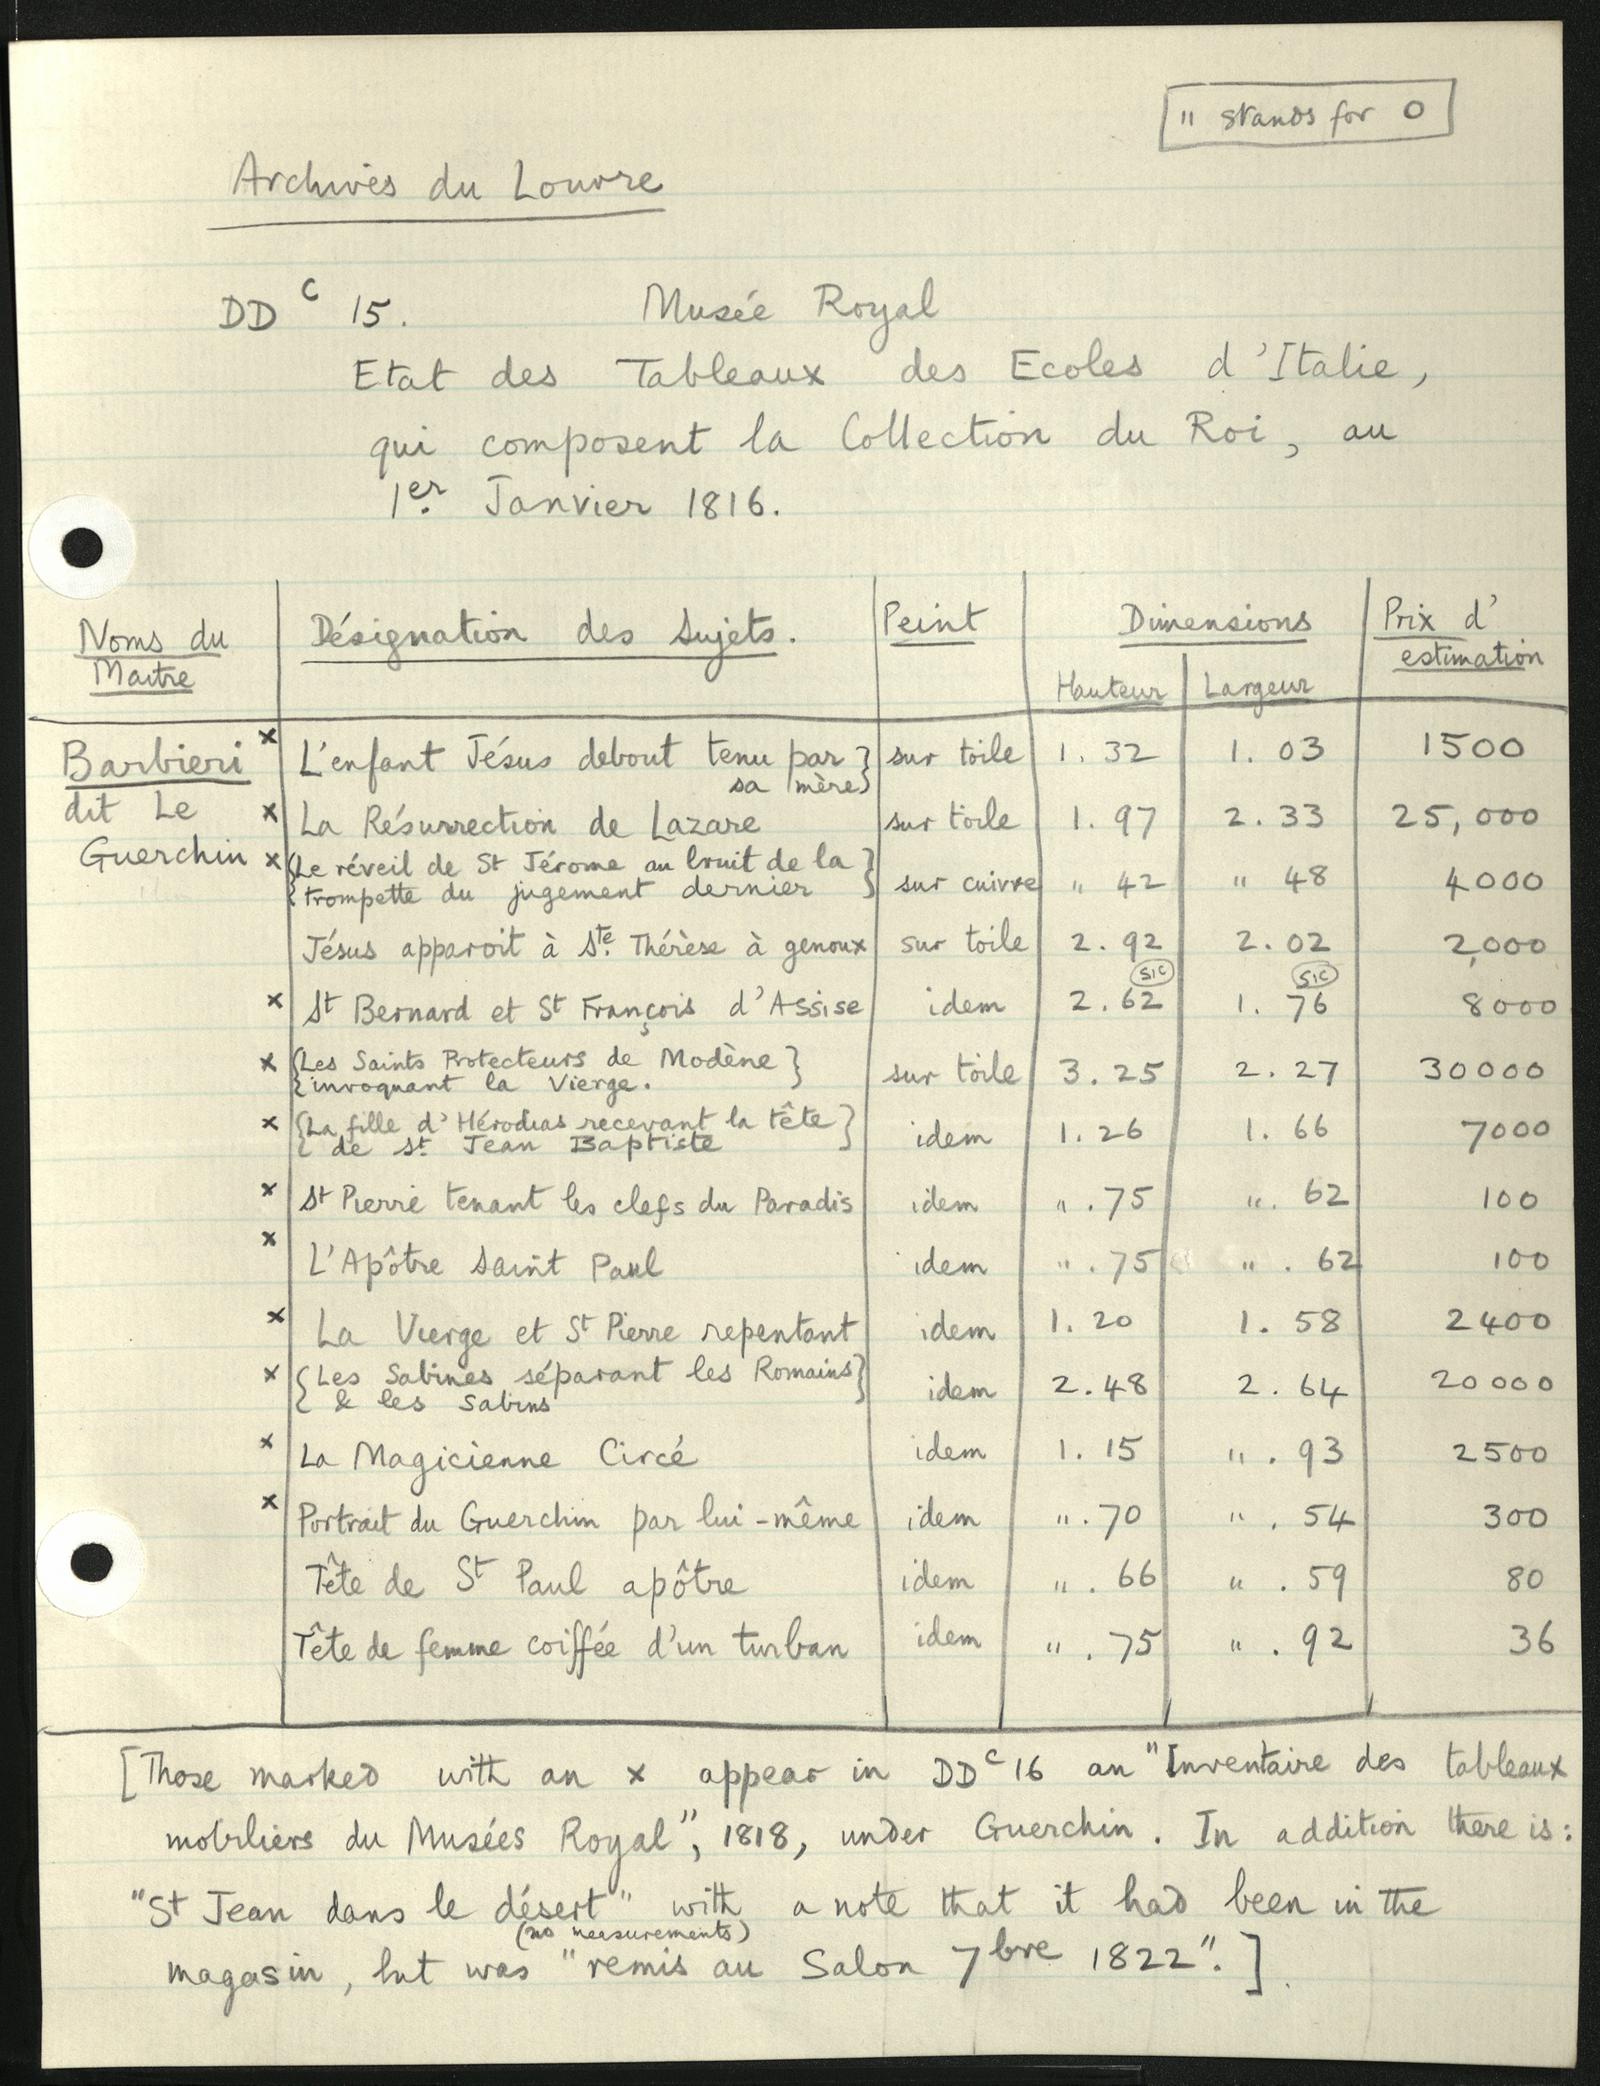 " stands for 0
Archives du Louvre
DD c 15. Musée Royal
Etat des Tableaux des Ecoles d'Italie,
qui composent la Collection du Roi, au
1er Janvier 1816.
Noms du Maitre | Désignation des Sujets. | Peint | Dimensions | Prix d' estimation
Hauteur | Largeur
Barbieri x L'enfant Jésus debout tenu par } sur toile 1. 32 1. 03 1500
sa mère }
dit Le x La Résurrection de Lazare sur toile 1. 97 2. 33 25,000
Guerchin x { Le réveil de St Jérome au bruit de la }
{ trompette du jugement dernier } sur cuivre " 42 " 48 4000
Jésus apparoit à Ste. Thérèse à genoux sur toile 2. 92 2. 02 2,000
SIC SIC
x St Bernard et St François d'Assise idem 2. 62 1. 76 8000
x { Les Saints Protecteurs de Modène }
{ invoquant la Vierge. sur toile 3. 25 2. 27 30000
x { La fille d'Hérodias recevant la tête }
{ de St. Jean Baptiste } idem 1. 26 1. 66 7000
x St Pierre tenant les clefs du Paradis idem " . 75 ". 62 100
x L'Apôtre Saint Paul idem " . 75 " . 62 100
x La Vierge et St Pierre repentant idem 1. 20 1. 58 2400
x { Les Sabines séparant les Romains }
{ & les Sabins } idem 2. 48 2. 64 20000
x La Magicienne Circé idem 1. 15 " . 93 2500
x Portrait du Guerchin par lui-même idem ". 70 " . 54 300
Tête de St Paul apôtre idem " . 66 " . 59 80
Tête de femme coiffée d'un turban idem " . 75 " . 92 36
[Those marked with an x appear in DD c 16 an "Inventaire des tableaux
mobiliers du Musées Royal", 1818, under Guerchin. In addition there is:
"St Jean dans le désert" with a note that it had been in the
(no measurements)
magasin, but was "remis au Salon 7bre 1822".]